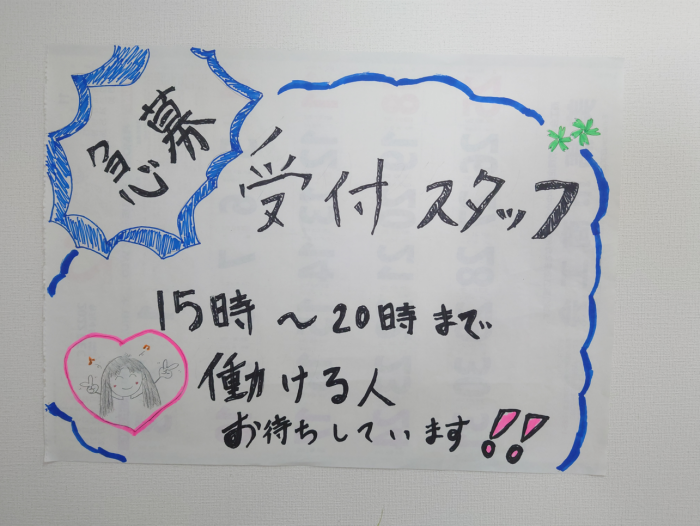 急募
受付スタッフ
15時〜20時まで
働ける人
お待ちしています!!